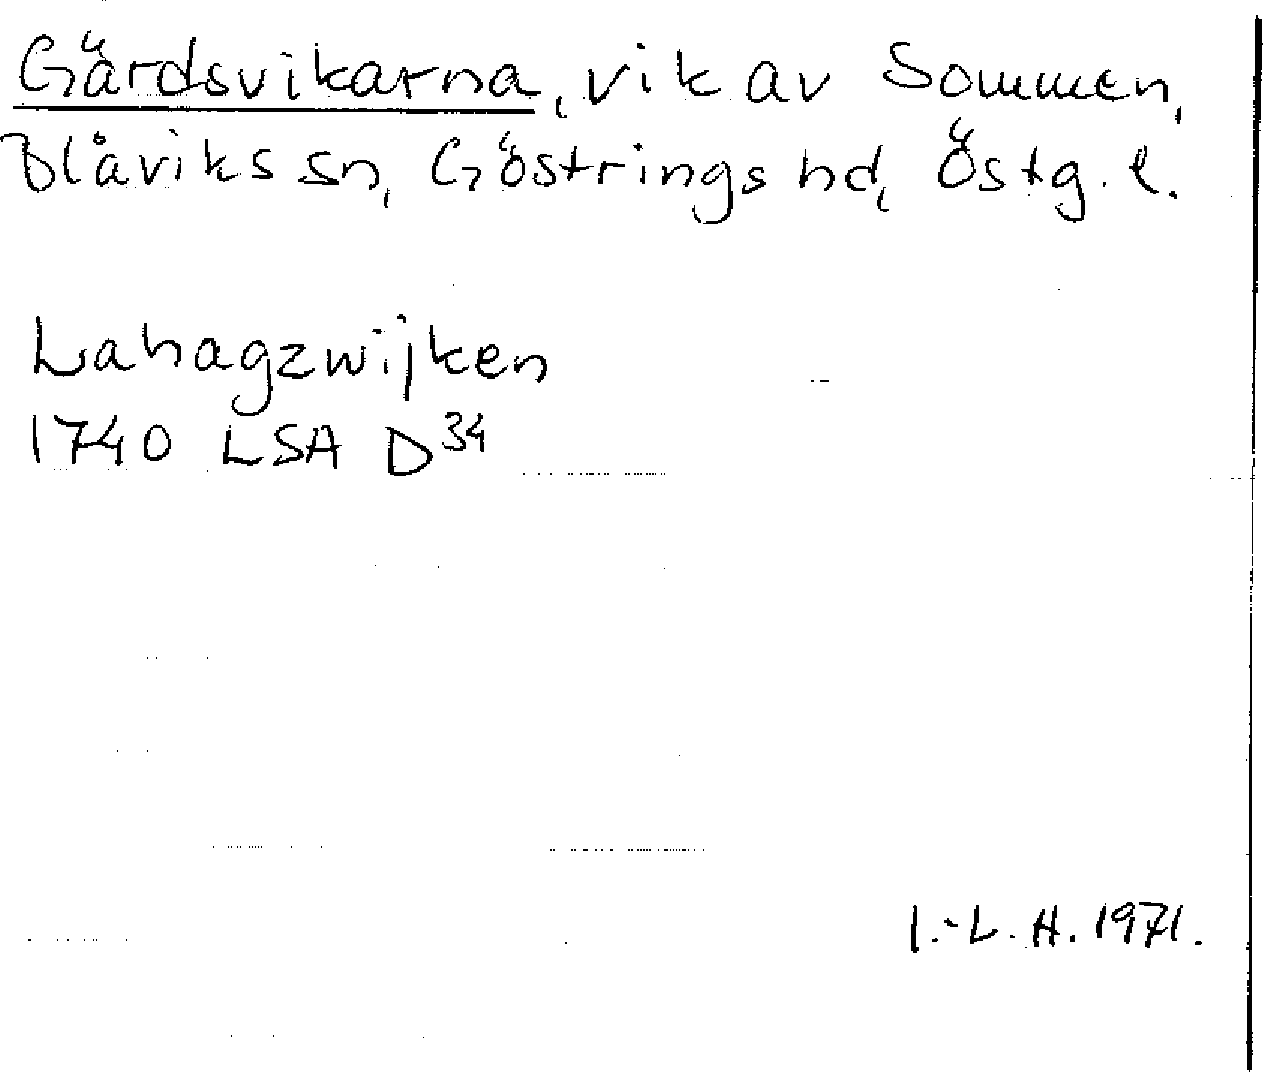 Gärdsvikarna, vik av Sommen,
Blåviks sn, Göstrings hd, Östg. l.
Lahagzwijken
1740 LSA D34
I.-L. H. 1971.